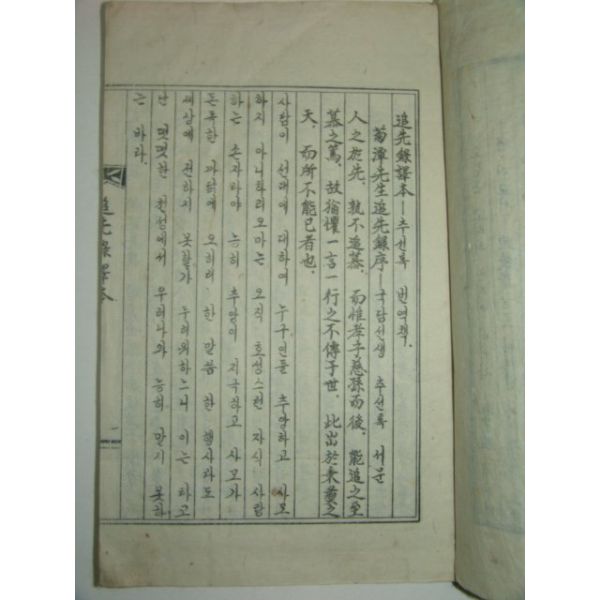 追先錄譯本—추선록 번역책.
菊潭先生追先錄序—국담선생 추선록 서문
人之於先, 孰不追慕, 而惟孝子慈孫而後, 能追之至
慕之篤, 故猶懼一言一行之不傳于世, 此出於秉彛之
天, 而所不能已者也.
사람이 선대에 대하여 누구인들 추앙하고 사모
하지 아니하리오마는 오직 효성스런 자식 사랑
하는 손자라야 능히 추앙이 지극하고 사모가
돈독한 까닭에 오히려 한 말씀 한 행사라도
세상에 전하지 못할가 두려워하느니 이는 하고
난 떳떳한 천성에서 우러나와 능히 말지 못하
는 바라.
追先錄譯本
一